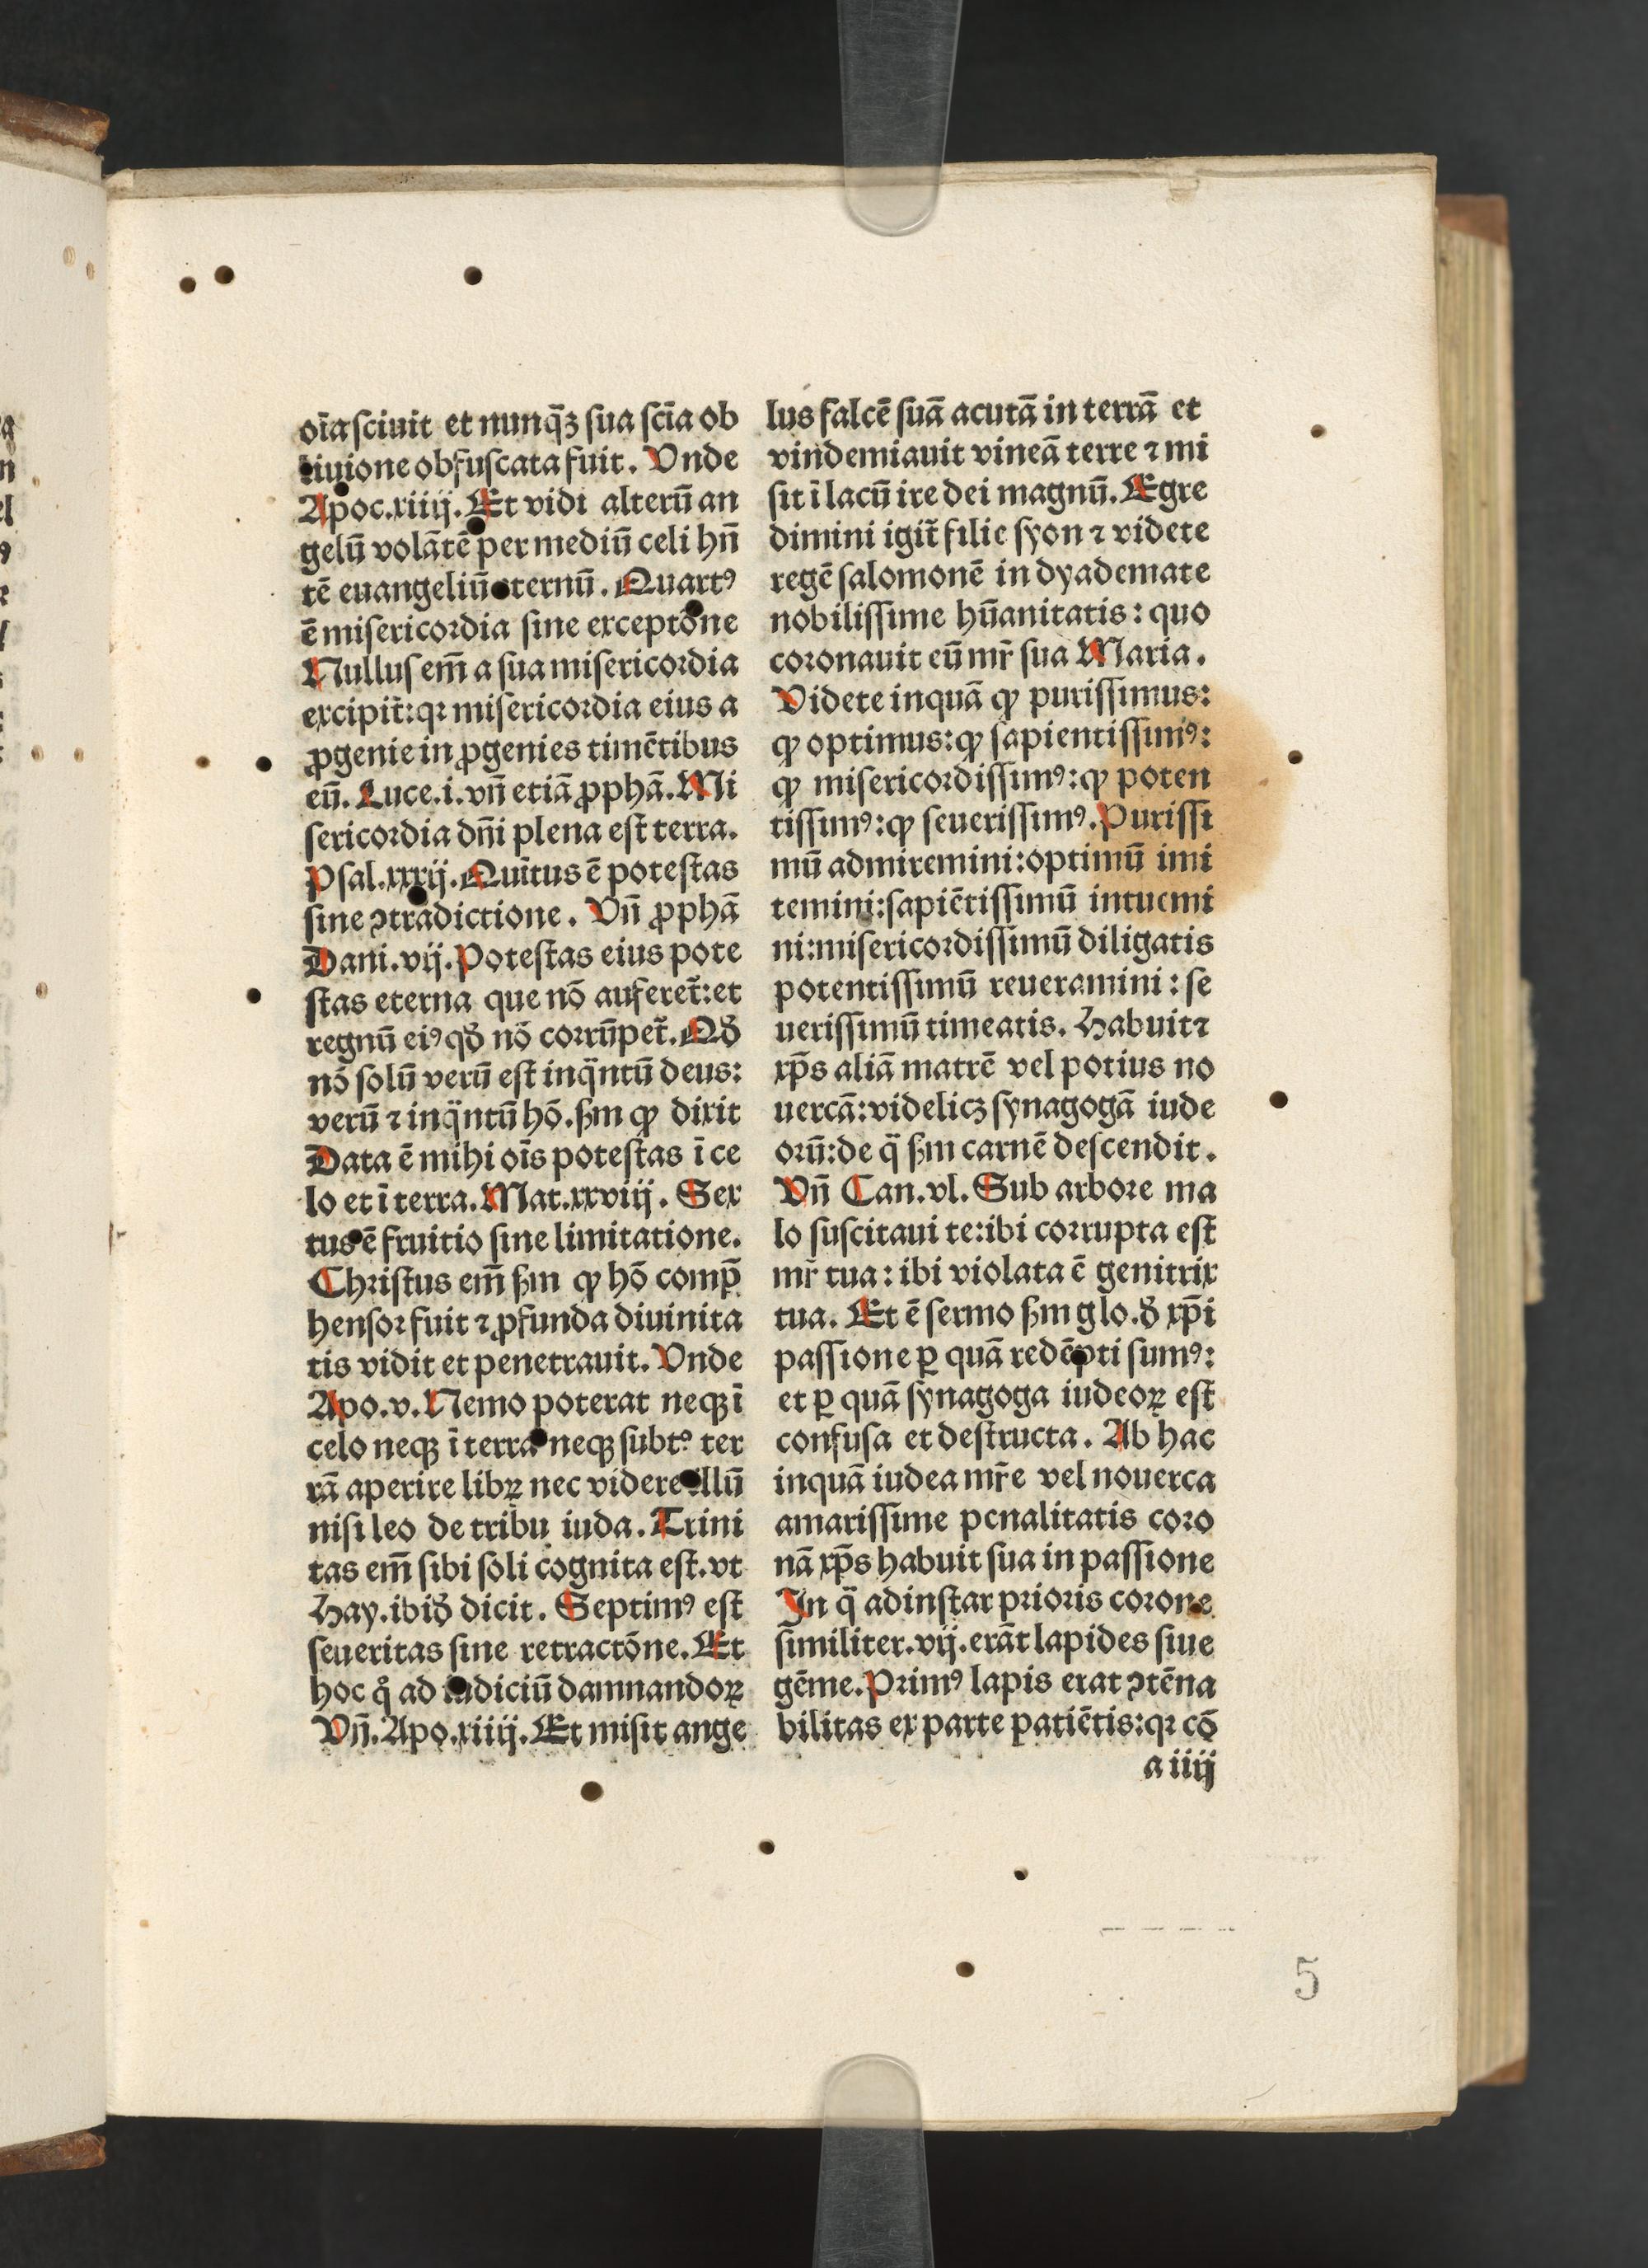 oīa sciuit et nunq̄ꝫ sua scīa ob
liuione obfuscata fuit. Vnde
Apoc.xiiij. Et vidi alterū an
gelū volātē per mediū celi hn̄
tē euangeliū eternū. Quartꝰ
ē misericordia sine exceptōne
Nullus em̄ a sua misericordia
excipit̄: qꝛ misericordia eius a
ꝓgenie in ꝓgenies timētibus
eū. Luce.i. vn̄ etiā ꝓphā. Mi
sericordia dn̄i plena est terra.
Psal.xxxij. Quītus ē potestas
sine ꝯtradictione. Vn̄ ꝓphā
Dani.vij. Potestas eius pote
stas eterna que nō auferet̄: et
regnū eiꝰ qđ nō corrūpet̄. Qđ
nō solū verū est inq̄ntū deus:
verū ⁊ inq̄ntū hō. ẜm ꝙ dixit
Data ē mihi oīs potestas ī ce
lo et ī terra. Mat.xxviij. Sex
tus ē fruitio sine limitatione.
Christus em̄ ẜm ꝙ hō comp̄
hensor fuit ⁊ ꝓfunda diuinita
tis vidit et penetrauit. Vnde
Apo.v. Nemo poterat neqꝫ ī
celo neqꝫ ī terra neqꝫ subtꝰ ter
rā aperire librꝝ nec videre illū
nisi leo de tribu iuda. Trini
tas em̄ sibi soli cognita est. vt
Hay. ibiđ dicit. Septimꝰ est
seueritas sine retractōne. Et
hoc qͦ ad iudiciū damnandoꝝ
Vn̄. Apo.xiiij. Et misit ange
lus falcē suā acutā in terrā et
vindemiauit vineā terre ⁊ mi
sit ī lacū ire dei magnū. Egre
dimini igit̄ filie syon ⁊ videte
regē salomonē in dyademate
nobilissime hūanitatis: quo
coronauit eū mr̄ sua Maria.
Videte inquā ꝙ purissimus:
ꝙ optimus: ꝙ sapientissimꝰ:
ꝙ misericordissimꝰ: ꝙ poten
tissimꝰ: ꝙ seuerissimꝰ. Purissi
mū admiremini: optimū imi
temini: sapiētissimū intuemi
ni: misericordissimū diligatis
potentissimū reueramini: se
uerissimū timeatis. Habuit ⁊
xp̄s aliā matrē vel potius no
uercā: videlicꝫ synagogā iude
orū: de q̄ ẜm carnē descendit.
Vn̄ Can.vl. Sub arbore ma
lo suscitaui te: ibi corrupta est
mr̄ tua: ibi violata ē genitrix
tua. Et ē sermo ẜm glo. đ xp̄i
passione ꝑ quā redēpti sumꝰ:
et ꝑ quā synagoga iudeoꝝ est
confusa et destructa. Ab hac
inquā iudea mr̄e vel nouerca
amarissime penalitatis coro
nā xp̄s habuit sua in passione
In q̄ ad instar prioris corone
similiter.vij. erāt lapides siue
gēme. Primꝰ lapis erat ꝯtēna
bilitas ex parte patiētis: qꝛ cō
a iiij
5